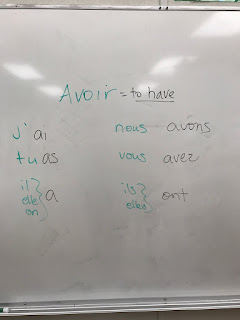 Avoir = to have
j' ai nous avons
tu as vous avez
il } ils }
elle } a elles } ont
on